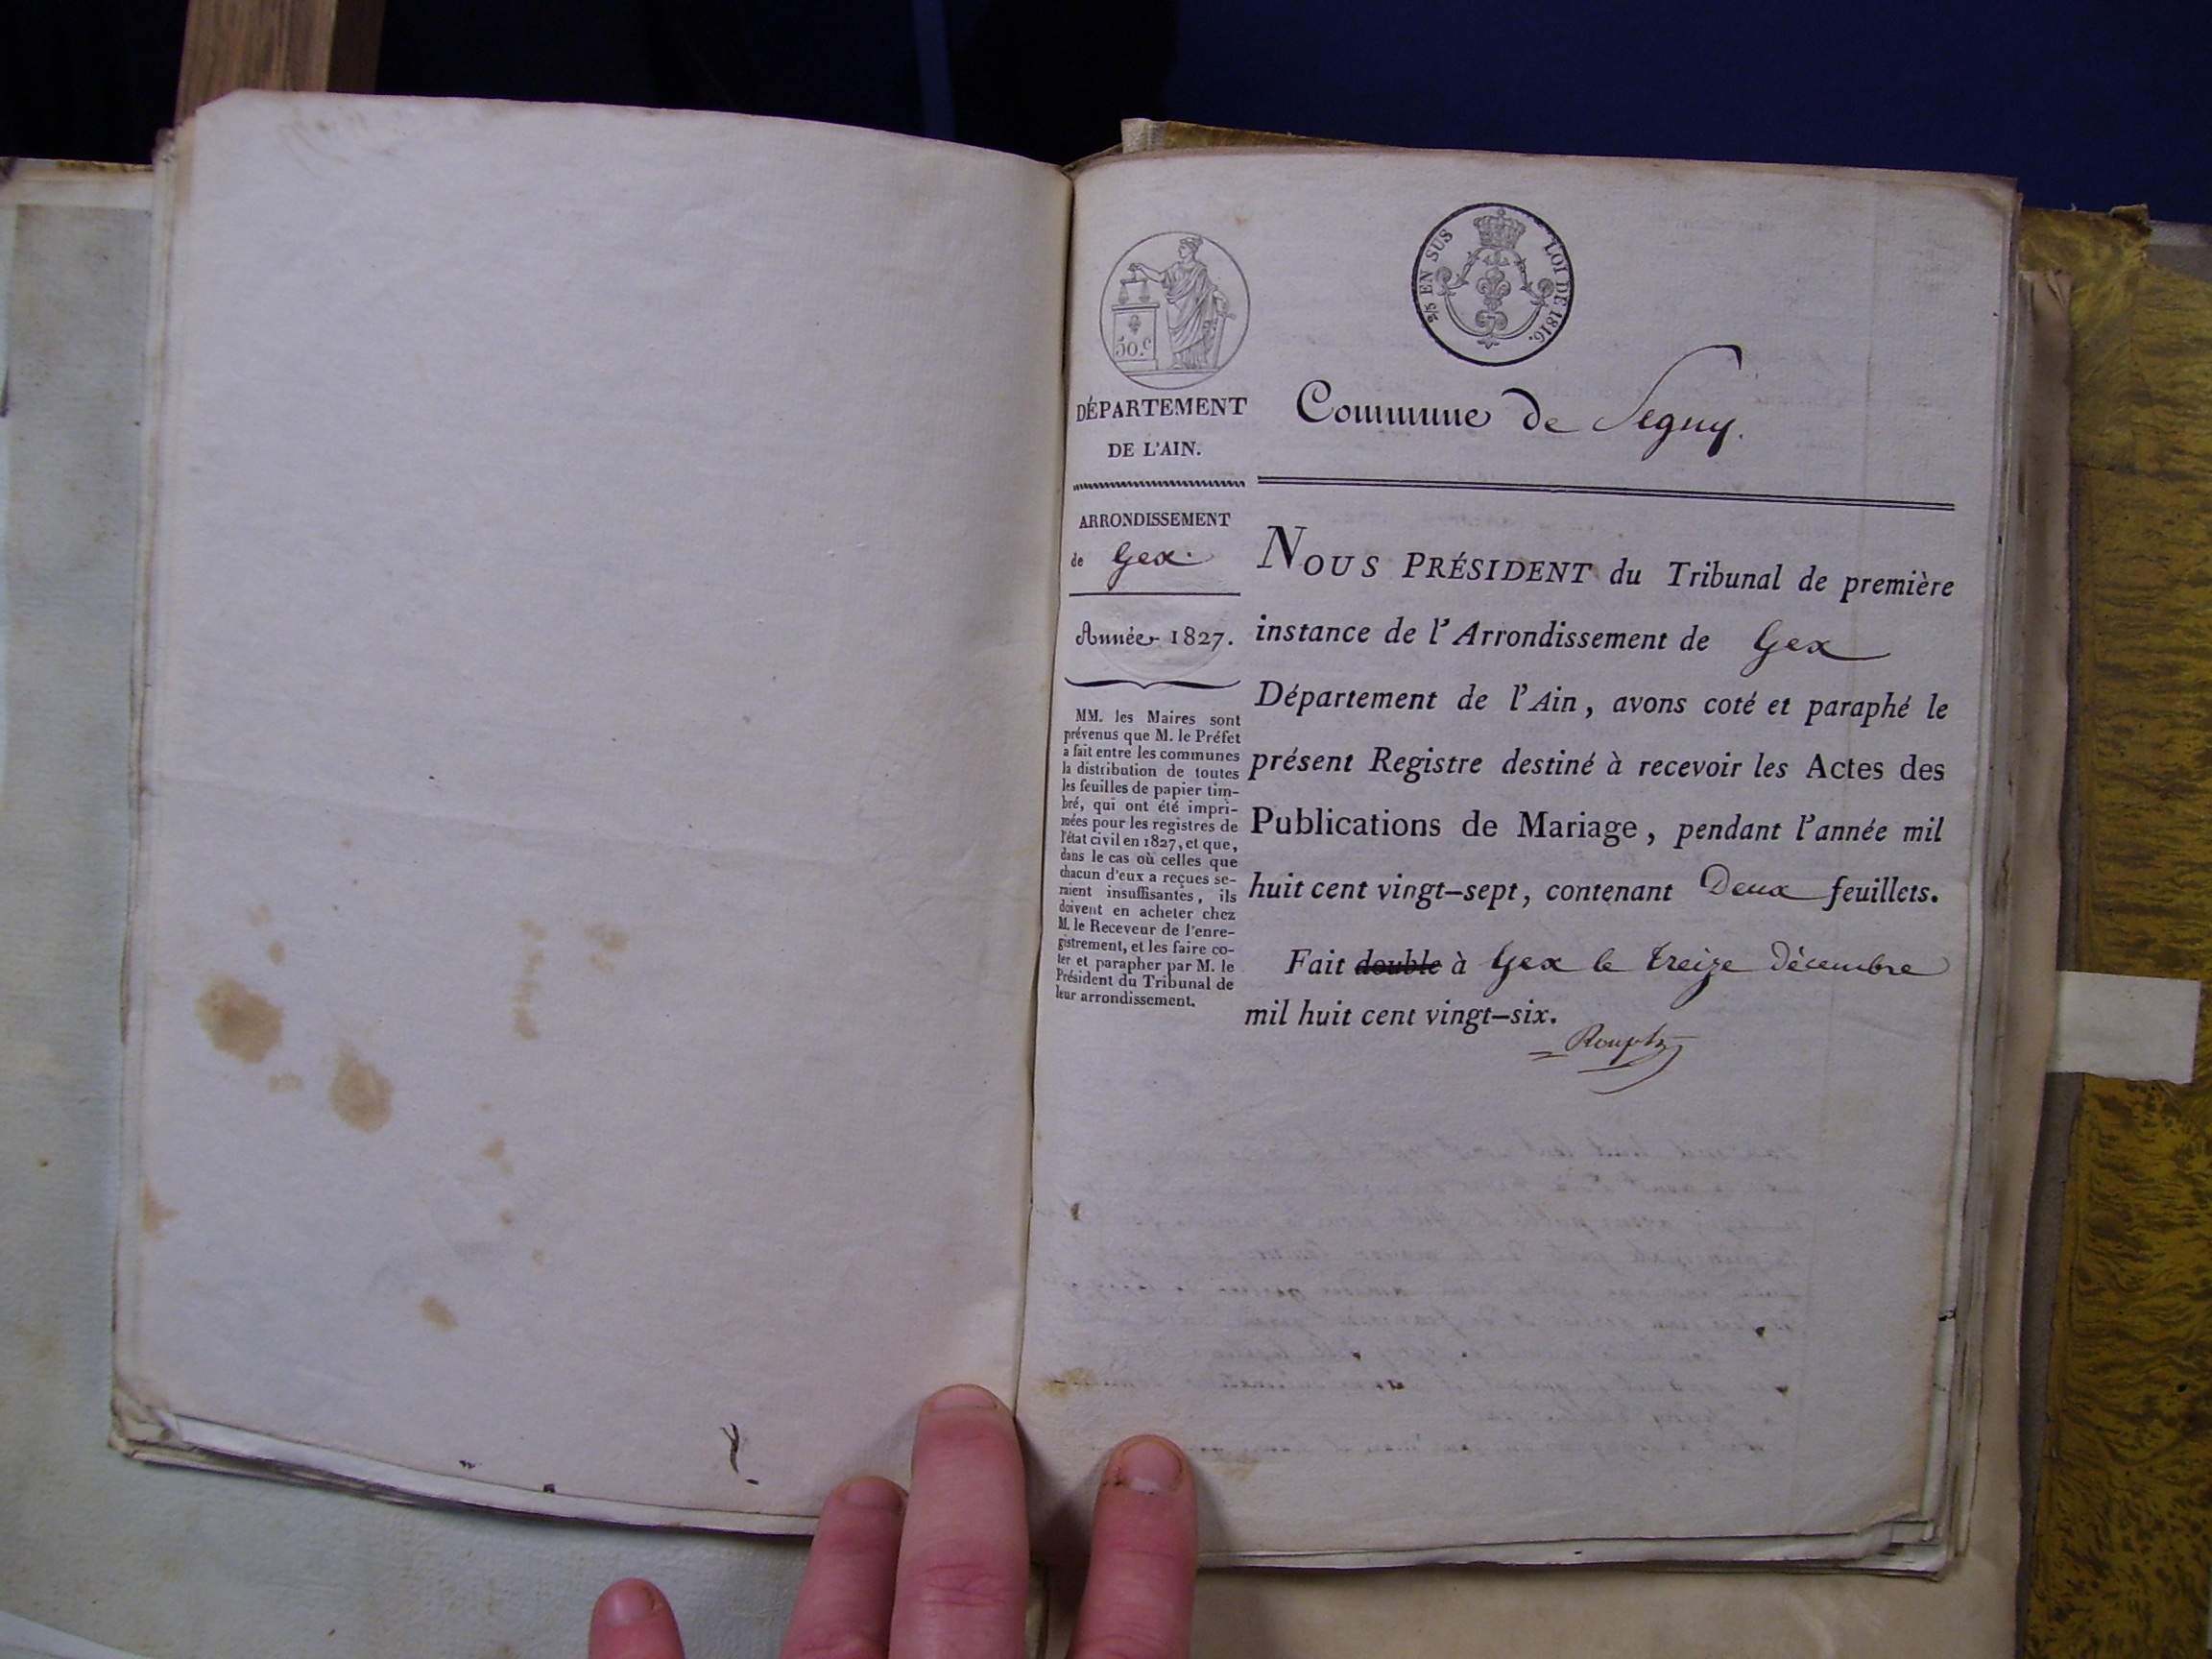 50.c
2/5 EN SUS LOI DE 1816.
DÉPARTEMENT
DE L'AIN.
Commune de Segny.
ARRONDISSEMENT
de Gex.
Année 1827.
MM. les Maires sont
prévenus que M. le Préfet
a fait entre les communes
la distribution de toutes
les feuilles de papier tim-
bré, qui ont été impri-
mées pour les registres de
l'état civil en 1827, et que,
dans le cas où celles que
chacun d'eux a reçues se-
raient insuffisantes, ils
doivent en acheter chez
M. le Receveur de l'enre-
gistrement, et les faire co-
ter et parapher par M. le
Président du Tribunal de
leur arrondissement.
NOUS PRÉSIDENT du Tribunal de première
instance de l'Arrondissement de Gex
Département de l'Ain, avons coté et paraphé le
présent Registre destiné à recevoir les Actes des
Publications de Mariage, pendant l'année mil
huit cent vingt-sept, contenant Deux feuillets.
Fait double à Gex le treize Décembre
mil huit cent vingt-six.